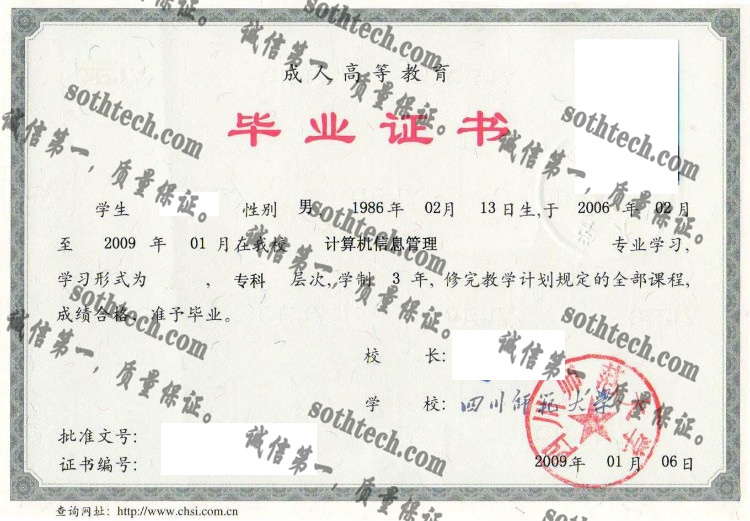 成人高等教育
毕业证书
学生 性别 男 1986年 02月 13日生,于 2006 年 02月
至 2009 年 01 月在我校 计算机信息管理 专业学习,
学习形式为 , 专科 层次,学制 3 年,修完教学计划规定的全部课程,
成绩合格,准予毕业。
校 长:
学 校: 四川师范大学
批准文号:
证书编号:
2009年 01 月 06日
查询网址: http://www.chsi.com.cn
sothtech.com
诚信第一,质量保证。
sothtech.com
诚信第一,质量保证。
sothtech.com
诚信第一,质量保证。
sothtech.com
诚信第一,质量保证。
sothtech.com
诚信第一,质量保证。
sothtech.com
诚信第一,质量保证。
sothtech.com
诚信第一,质量保证。